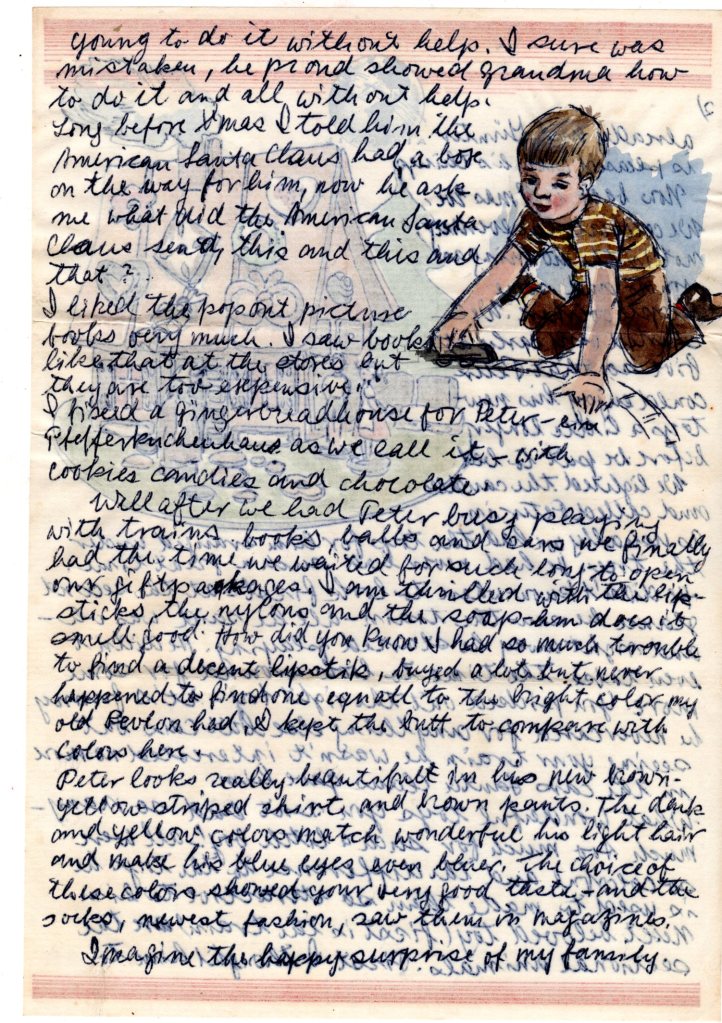 young to do it without help. I sure was
mistaken, he proud showed grandma how
to do it and all without help.
Long before Xmas I told him the
American Santa Claus had a box
on the way for him, now he ask
me what did the American Santa
Claus send, this and this and
that?
I liked the popout picture
books very much. I saw books
like that at the stores but
they are too expensive.
I fixed a gingerbreadhouse for Peter - ein
Pfefferkuchenhaus as we call it - with
cookies candies and chocolate
Will after we had Peter busy playing
with trains, books, balls and cars we finally
had the time we waited for such long - to open
our giftpackages. I am thrilled with the lip-
sticks, the nylons and the soap - hm does it
smell good. How did you know I had so much trouble
to find a decent lipstik, buyed a lot but never
happened to find one equall to the bright color my
old Revlon had, I kept the butt to compare with
colors here.
Peter looks really beautifull in his new brown-
yellow striped shirt and brown pants. The dark
and yellow colors match wonderful his light hair
and make his blue eyes even bluer. The choice of
these colors showed your very good taste - and the
socks, newest fashion, saw them in magazines.
Imagine the happy surprise of my family.